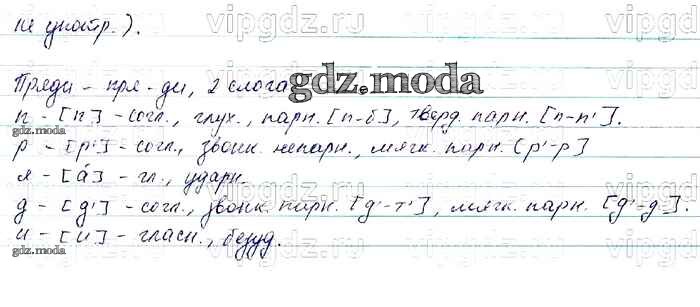 не употр.).
Пряди - пря-ди, 2 слога
gdz.moda
п - [п] - согл., глух., парн. [п-б], тверд. парн. [п-п'].
gdz.moda
р - [р'] - согл., звонк. непарн., мягк. парн. [р'-р]
я - [á] - гл., ударн.
д - [д'] - согл., звонк. парн. [д'-т'], мягк. парн. [д'-д].
и - [и] - гласн., безуд.
gdz.moda
vipgdz.ru